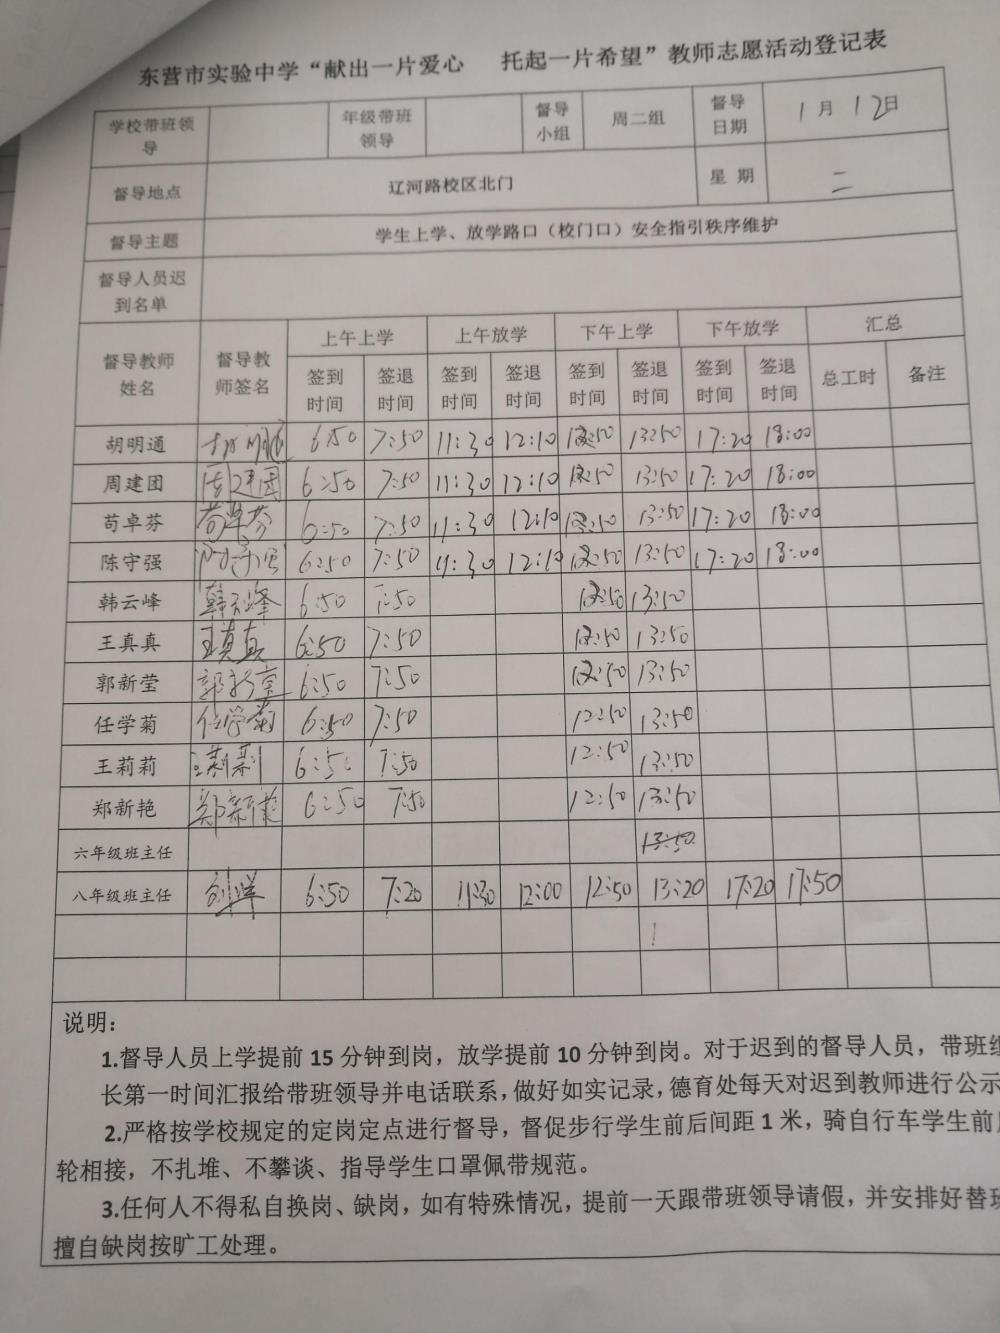 东营市实验中学“献出一片爱心 托起一片希望”教师志愿活动登记表
学校带班领导 年级带班领导 督导小组 周二组 督导日期 1月12日
督导地点 辽河路校区北门 星 期 二
督导主题 学生上学、放学路口（校门口）安全指引秩序维护
督导人员迟到名单
督导教师姓名 督导教师签名 上午上学 上午放学 下午上学 下午放学 汇总
签到时间 签退时间 签到时间 签退时间 签到时间 签退时间 签到时间 签退时间 总工时 备注
胡明通 胡明通 6:50 7:50 11:30 12:10 12:50 13:50 17:20 18:00
周建团 周建团 6:50 7:50 11:30 12:10 12:50 13:50 17:20 18:00
苟卓芬 苟卓芬 6:50 7:50 11:30 12:10 12:50 13:50 17:20 18:00
陈守强 陈守强 6:50 7:50 11:30 12:10 12:50 13:50 17:20 18:00
韩云峰 韩云峰 6:50 7:50 12:50 13:50
王真真 王真真 6:50 7:50 12:50 13:50
郭新莹 郭新莹 6:50 7:50 12:50 13:50
任学菊 任学菊 6:50 7:50 12:50 13:50
王莉莉 王莉莉 6:50 7:50 12:50 13:50
郑新艳 郑新艳 6:50 7:50 12:50 13:50
六年级班主任 13:50
八年级班主任 6:50 7:20 11:30 12:00 12:50 13:20 17:20 17:50
说明：
1.督导人员上学提前 15 分钟到岗，放学提前 10 分钟到岗。对于迟到的督导人员，带班组
长第一时间汇报给带班领导并电话联系，做好如实记录，德育处每天对迟到教师进行公示
2.严格按学校规定的定岗定点进行督导，督促步行学生前后间距 1 米，骑自行车学生前
轮相接，不扎堆、不攀谈、指导学生口罩佩带规范。
3.任何人不得私自换岗、缺岗，如有特殊情况，提前一天跟带班领导请假，并安排好替班
擅自缺岗按旷工处理。